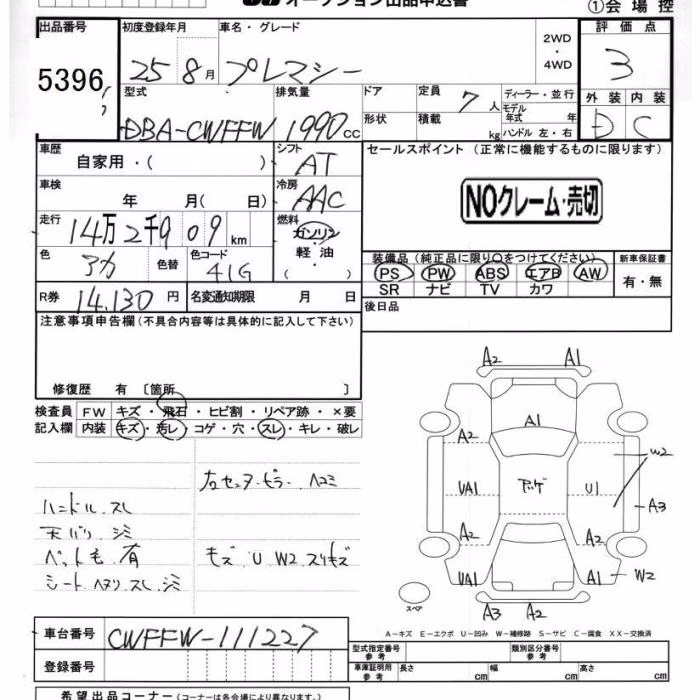 オークション出品申込書
①会場控
出品番号 初度登録年月 車名・グレード 2WD・4WD 評価点
5396 25 8月 プレマシー 3
型式 排気量 ドア 定員 7人 ディーラー・並行 外装 内装
DBA-CWFFW 1990cc 形状 積載 kg モデル年式 年 ハンドル 左・右 D C
車歴 自家用・( ) シフト AT セールスポイント (正常に機能するものに限ります)
車検 年 月( 日) 冷房 AAC NOクレーム・売切
走行 14万2千909km 燃料 ガソリン・軽油・( )
色 アカ 色替 色コード 41G
装備品(純正品に限り○をつけてください) 新車保証書
PS PW ABS エアB AW 有・無
SR ナビ TV カワ
R券 14,130円 名変通知期限 月 日 後日品
注意事項申告欄(不具合内容等は具体的に記入して下さい)
修復歴 有 〔箇所 〕
検査員 FW キズ・飛石・ヒビ割・リペア跡・×要
記入欄 内装 キズ・汚レ・コゲ・穴・スレ・キレ・破レ
右センターピラー ヘコミ
ハンドル スレ
天バリ シミ
ペット毛 有
キズ U W2 スリキズ
シート ヘタリ スレ シミ
A2 A1
A1
A2 W2
UA1 U1 A3
A2 A2
UA1 A1 W2
スペア A3 A2
A-キズ E-エクボ U-凹み W-補修跡 S-サビ C-腐食 XX-交換済
車台番号 CWFFW-111227
型式指定番号 参考 類別区分番号 参考
登録番号
車庫証明用 参考 長さ cm 幅 cm 高さ cm
希望出品コーナー(コーナーは各会場により異なります。)